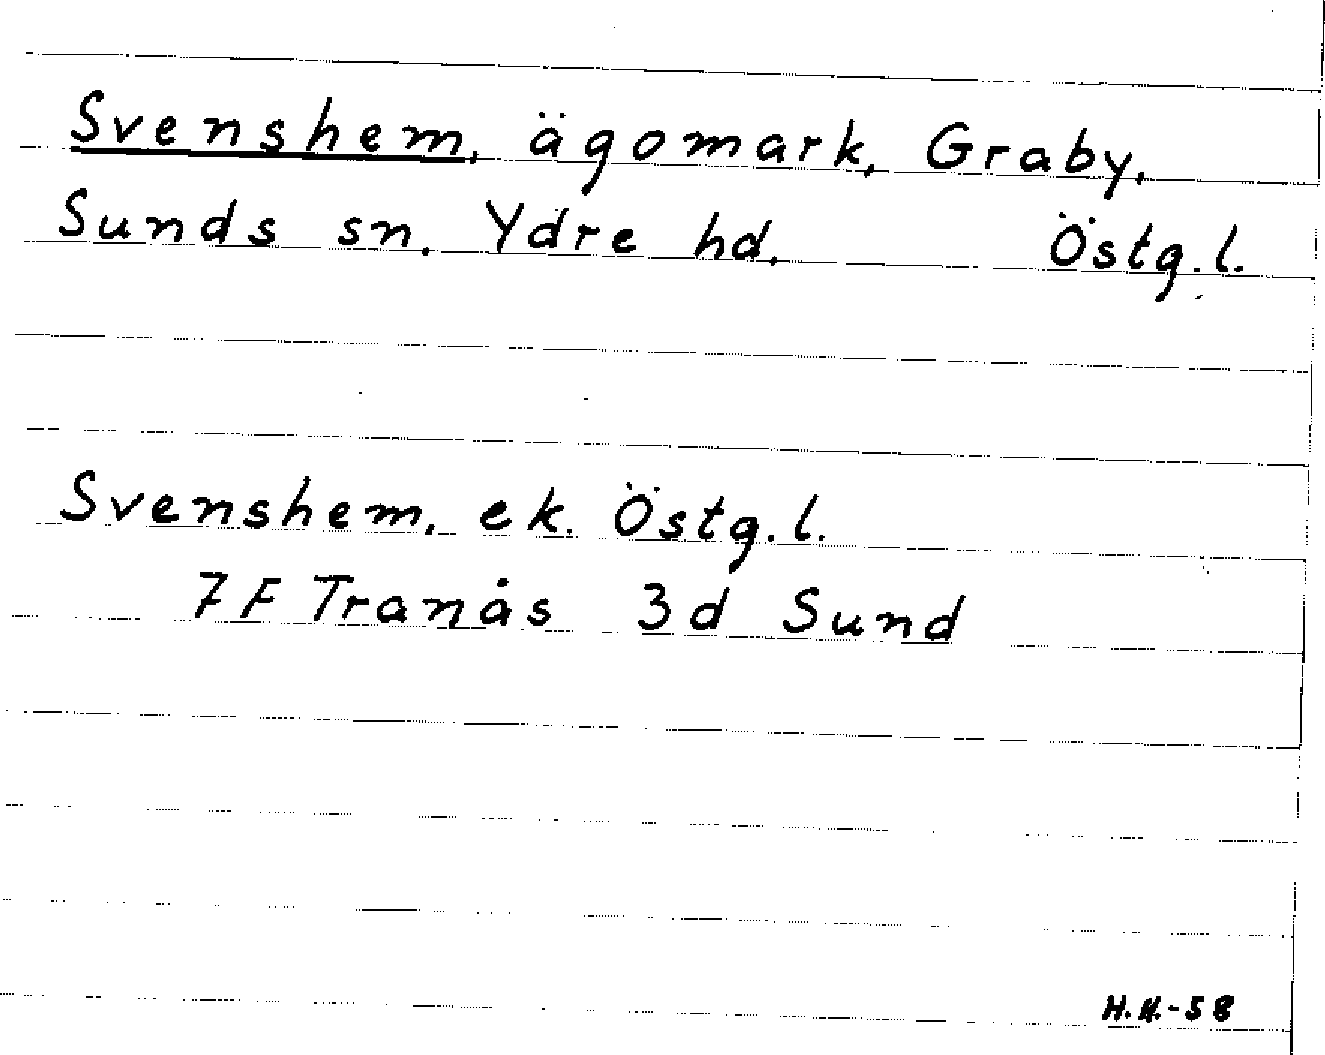 Svenshem, ägomark, Graby,
Sunds sn, Ydre hd, Östg.l.
Svenshem, ek. Östg.l.
7F Tranås 3d Sund